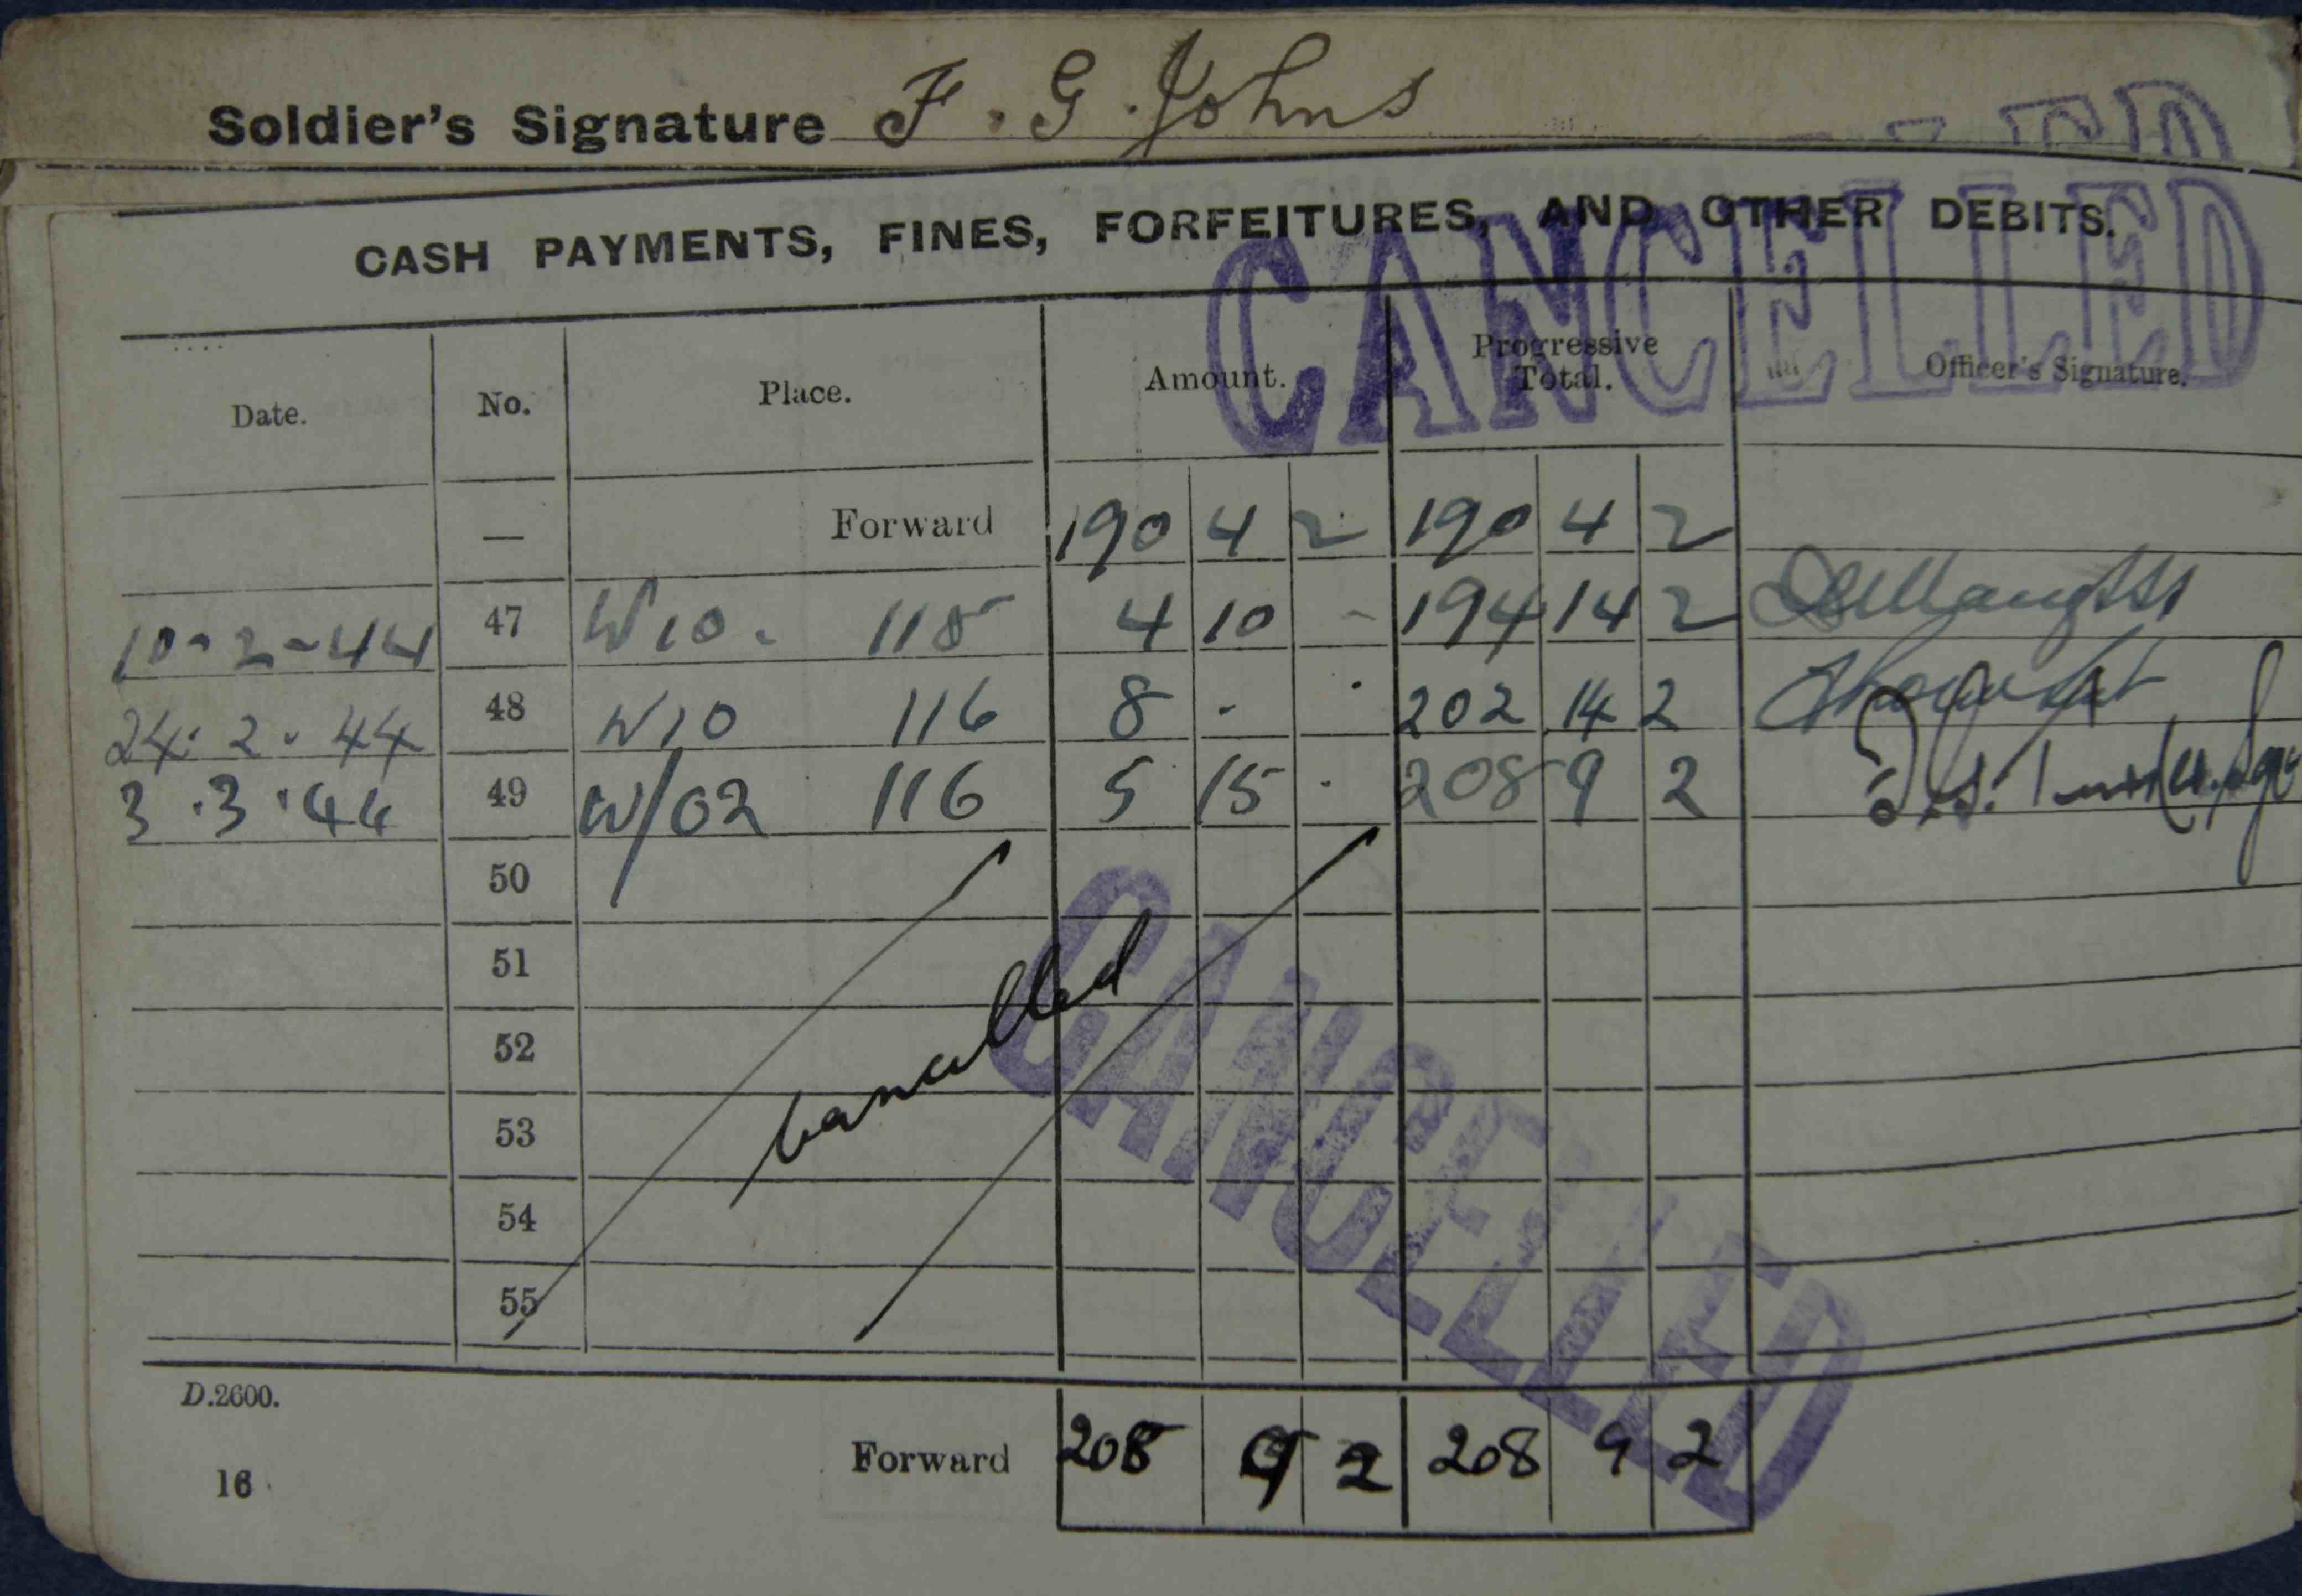 Soldier's Signature F. G. Johns
CANCELLED
CASH PAYMENTS, FINES, FORFEITURES, AND OTHER DEBITS.
CANCELLED
Date. No. Place. Amount. Progressive Total. Officer's Signature.
— Forward 190 4 2 190 4 2
10-2-44 47 W10. 115 4 10 - 194 14 2
24.2.44 48 W10 116 8 - . 202 14 2
3.3.44 49 W/02 116 5 15 . 208 9 2
50
51
52
53
54
55
cancelled
CANCELLED
D.2600.
Forward 208 9 2 208 9 2
16